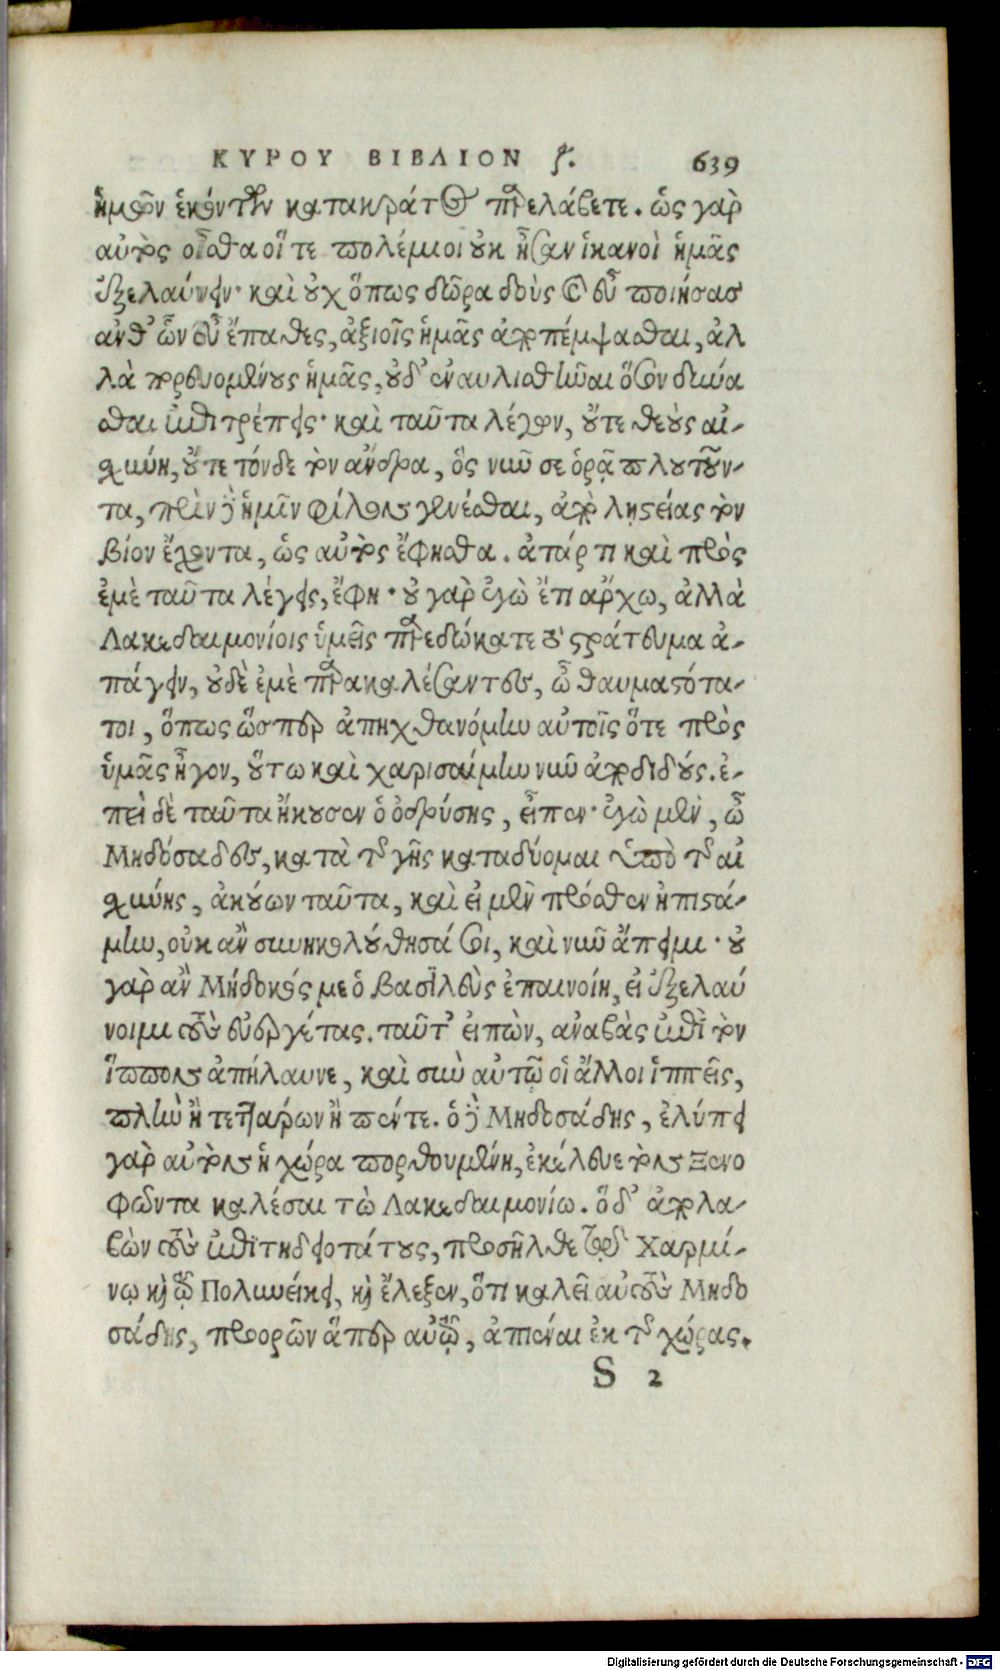 ΚΥΡΟΥ ΒΙΒΛΙΟΝ ζ. 639
ἡμῶν ἑκόντων κατακράτος παρελάβετε. ὡς γὰρ
αὐτὸς οἶσθα οἵ τε πολέμιοι οὐκ ἦσαν ἱκανοὶ ἡμᾶς
ἐξελαύνειν· καὶ οὐχ ὅπως δῶρα δοὺς καὶ εὖ ποιήσας
ἀνθ' ὧν εὖ ἔπαθες, ἀξιοῖς ἡμᾶς ἀποπέμψασθαι, ἀλ
λὰ πορευομένους ἡμᾶς, οὐδ' ἐναυλισθῆναι ὅσον δύνα
σθαι ἐπιτρέπεις· καὶ ταῦτα λέγων, οὔτε θεοὺς αἰ-
σχύνη, οὔτε τόνδε τὸν ἄνδρα, ὃς νῦν σε ὁρᾷ πλουτοῦν-
τα, πρὶν δὲ ἡμῖν φίλον γενέσθαι, ἀπὸ λῃστείας τὸν
βίον ἔχοντα, ὡς αὐτὸς ἔφησθα. ἀτάρ τι καὶ πρὸς
ἐμὲ ταῦτα λέγεις, ἔφη· οὐ γὰρ ἐγὼ ἔτι ἄρχω, ἀλλὰ
Λακεδαιμονίοις ὑμεῖς παρεδώκατε τὸ στράτευμα ἀ-
πάγειν, οὐδὲ ἐμὲ παρακαλέσαντες, ὦ θαυμαστότα-
τοι, ὅπως ὥσπερ ἀπηχθανόμην αὐτοῖς ὅτε πρὸς
ὑμᾶς ἦγον, οὕτω καὶ χαρισαίμην νῦν ἀποδιδούς. ἐ-
πεὶ δὲ ταῦτα ἤκουσεν ὁ ὀδρύσης, εἶπεν· ἐγὼ μὲν, ὦ
Μηδόσαδες, κατὰ τῆς γῆς καταδύομαι ὑπὸ τῆς αἰ
σχύνης, ἀκούων ταῦτα, καὶ εἰ μὲν πρόσθεν ἠπιστά-
μην, οὐκ ἂν συνηκολούθησά σοι, καὶ νῦν ἄπειμι· οὐ
γὰρ ἂν Μήδοκός με ὁ βασιλεὺς ἐπαινοίη, εἰ ἐξελαύ
νοιμι τοὺς εὐεργέτας. ταῦτ' εἰπὼν, ἀναβὰς ἐπὶ τὸν
ἵππον ἀπήλαυνε, καὶ σὺν αὐτῷ οἱ ἄλλοι ἱππεῖς,
πλὴν ἢ τεττάρων ἢ πέντε. ὁ δὲ Μηδοσάδης, ἐλύπει
γὰρ αὐτὸν ἡ χώρα πορθουμένη, ἐκέλευε τὸν Ξενο
φῶντα καλέσαι τὼ Λακεδαιμονίω. ὁ δ' ἀπολα-
βὼν τοὺς ἐπιτηδειοτάτους, προσῆλθε τῷ Χαρμί-
νῳ καὶ τῷ Πολυνείκει, καὶ ἔλεξεν, ὅτι καλεῖ αὐτοὺς Μηδο
σάδης, προορῶν ἅπερ αὐτῷ, ἀπιέναι ἐκ τῆς χώρας.
S 2
Digitalisierung gefördert durch die Deutsche Forschungsgemeinschaft - DFG